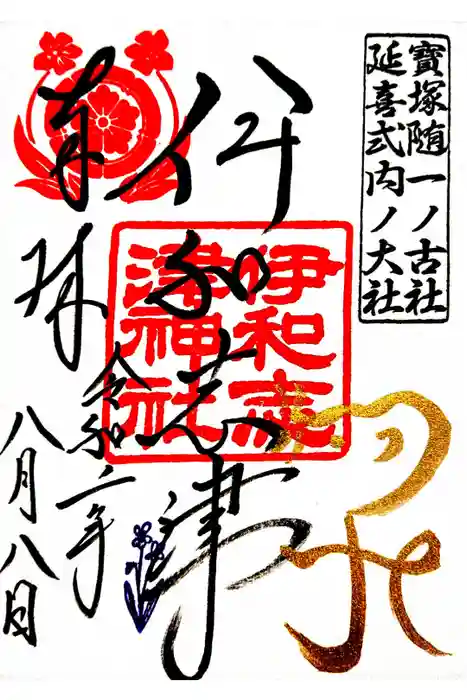 寶塚随一ノ古社
延喜式内ノ大社
伊和志津
伊和志
津神社
奉
拝
令和二年
八月八日